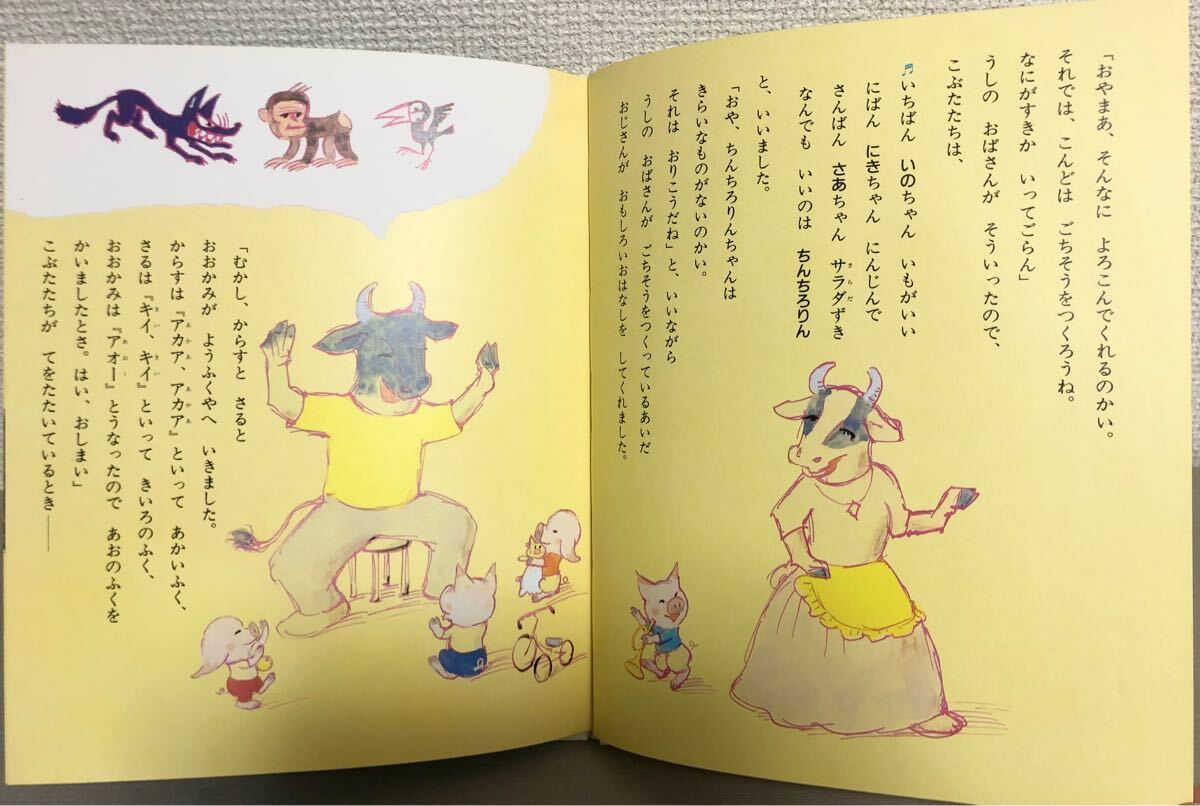 「おやまあ、そんなに よろこんでくれるのかい。
それでは、こんどは ごちそうをつくろうね。
なにがすきか いってごらん」
うしの おばさんが そういったので、
こぶたたちは、
♬いちばん いのちゃん いもがいい
にばん にきちゃん にんじんで
さんばん さあちゃん サラダずき
なんでも いいのは ちんちろりん
と、いいました。
「おや、ちんちろりんちゃんは
きらいなものがないのかい。
それは おりこうだね」と、いいながら
うしの おばさんが ごちそうをつくっているあいだ
おじさんが おもしろいおはなしを してくれました。
「むかし、からすと さると
おおかみが ようふくやへ いきました。
からすは『アカア、アカア』といって あかいふく、
さるは『キイ、キイ』といって きいろのふく、
おおかみは『アオー』とうなったので あおのふくを
かいましたとさ。はい、おしまい」
こぶたたちが てをたたいているとき――